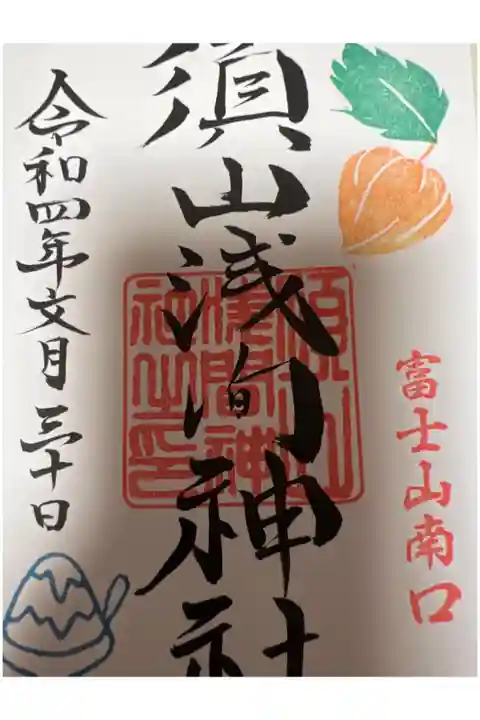 富士山南口
須山浅間神社
令和四年文月三十日
須山
浅間神
社之印